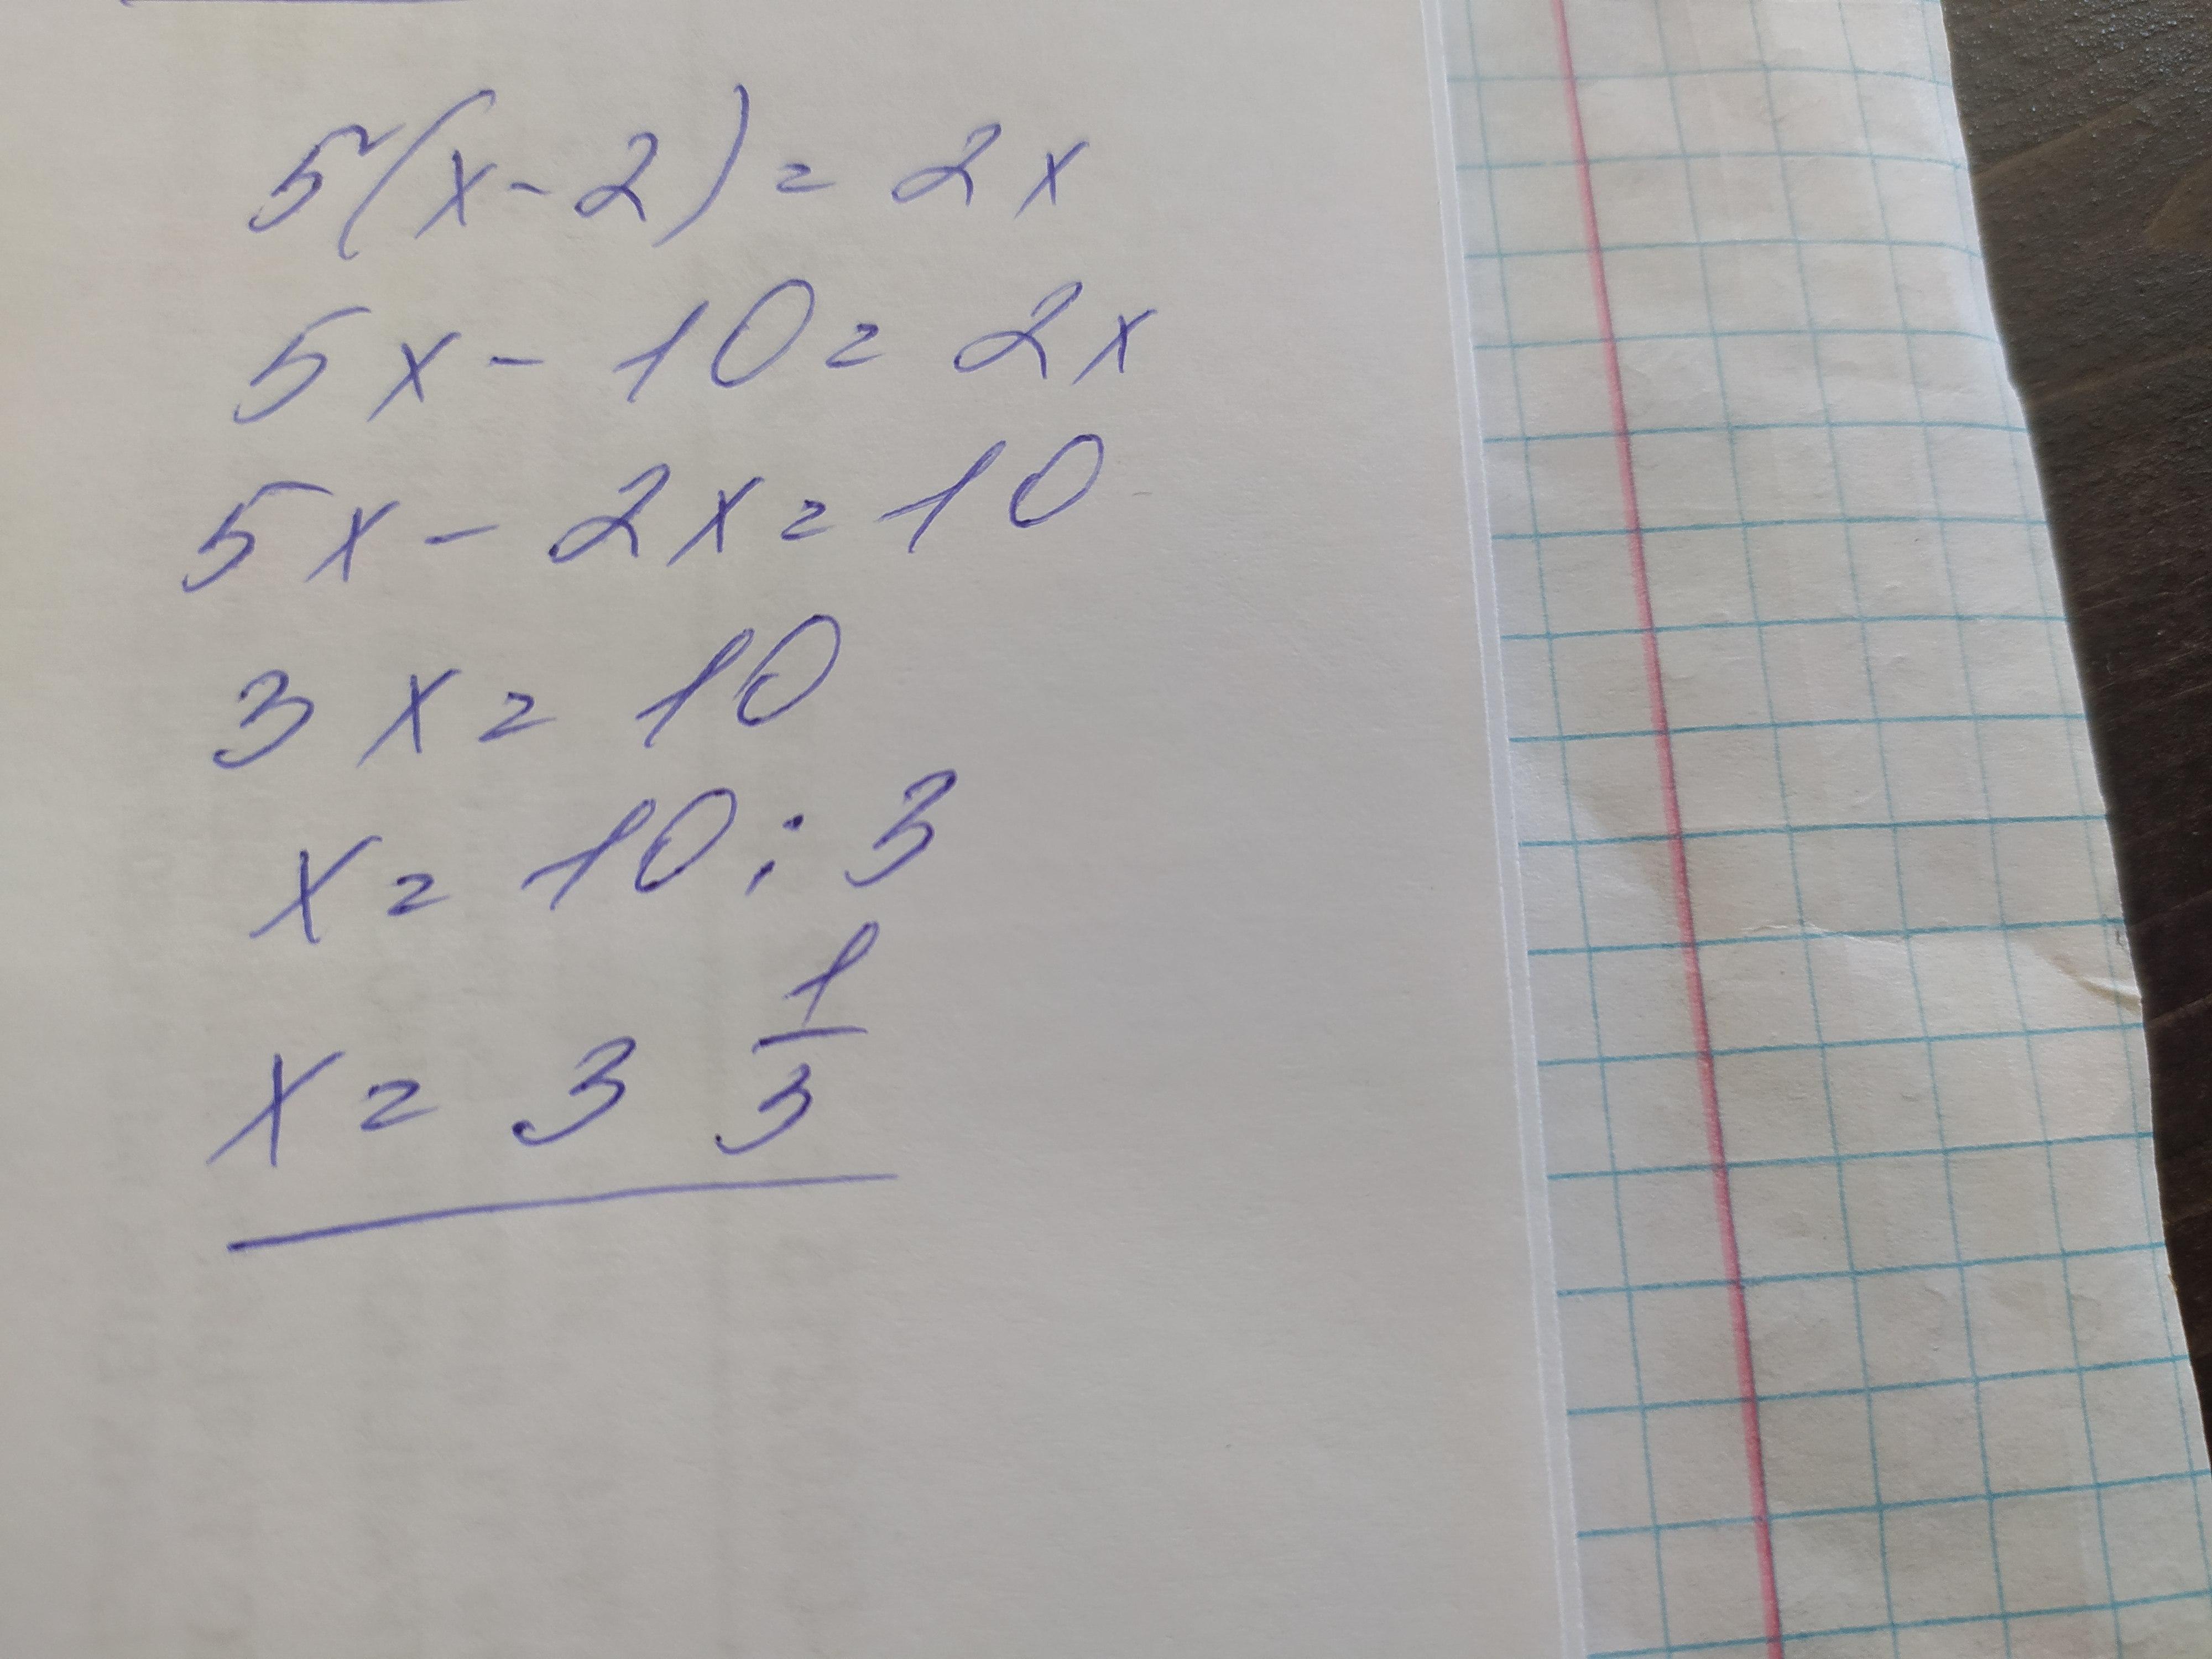 5(x-2)=2x
5x-10=2x
5x-2x=10
3x=10
x=10:3
x=3 1/3